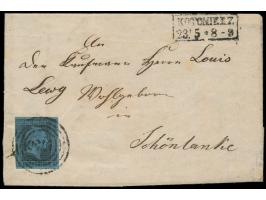 KOTOMIERZ
23/5 * 8-9
An
den Kaufmann Herrn Louis
Lewy Wohlgeboren
in
Schönlanke